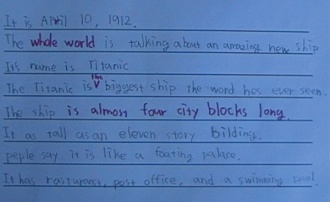 It is April 10, 1912.
The whole world is talking about an amazing new ship
It's name is Titanic
The Titanic is the biggest ship the word has ever seen.
The ship is almost four city blocks long.
It as tall as an eleven story bilding.
peple say it is like a foating palace.
It has rasturant, post office, and a swimming pool.